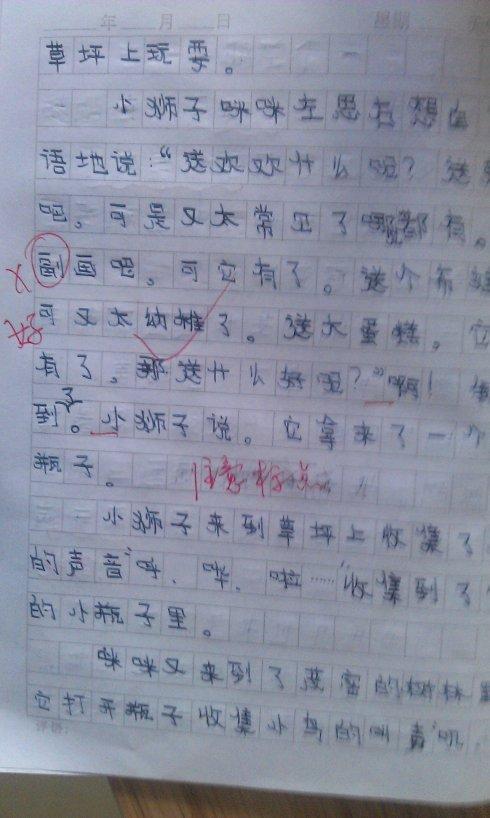 年 月 日 星期
草坪上玩耍。
小狮子咪咪在思考想自
语地说：“送欢欢什么呢？送
吧。可是又太常见了都有。
× 副画吧。可它有了。送个布
好 可又太幼稚了。送大蛋糕。它
有了。那送什么好呢？”啊！
到了。小狮子说。它拿来了一个
瓶子。 注意标点
小狮子来到草坪上收集了
的声音“呼、哗、啦……”收集到了
的小瓶子里。
咪咪又来到了茂密的树林里
它打开瓶子收集小鸟的叫声“叽
评语：